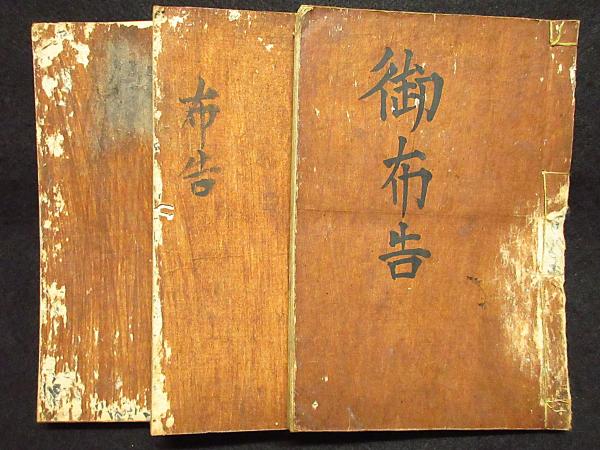 御布告
布告